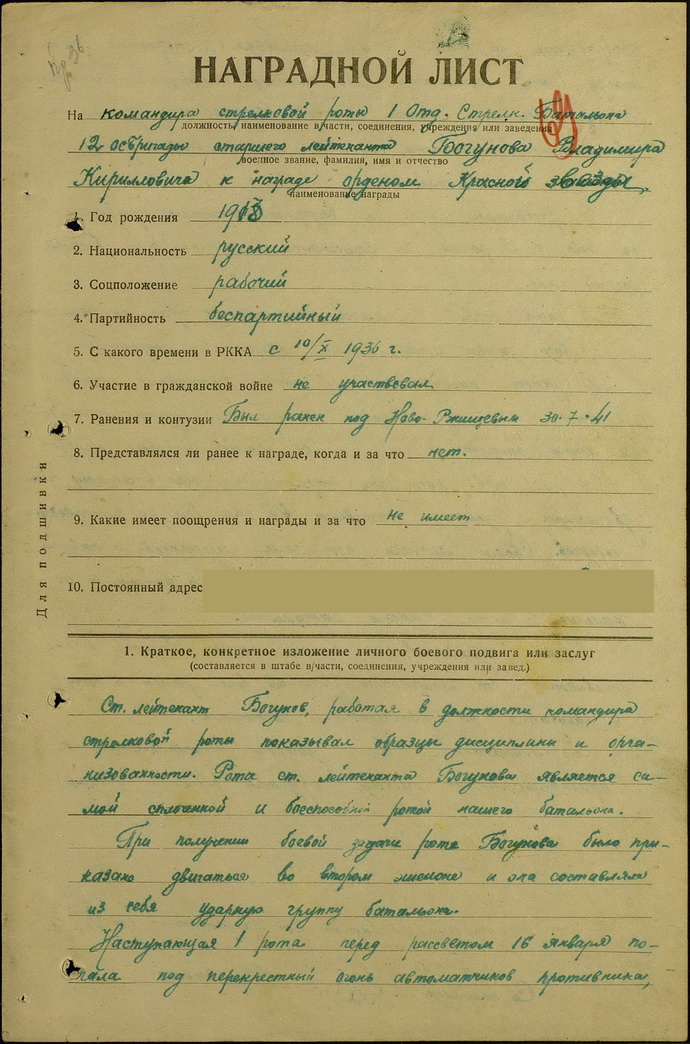 Пр 36
НАГРАДНОЙ ЛИСТ
На командира стрелковой роты 1 Отд. Стрелк. Батальона
должность, наименование в/части, соединения, учреждения или заведения
12 осбригады старшего лейтенанта Богунова Владимира
воинское звание, фамилия, имя и отчество
Кирилловича к награде орденом Красной звезды
наименование награды
1. Год рождения 1913
2. Национальность русский
3. Соцположение рабочий
4. Партийность беспартийный
5. С какого времени в РККА с 10/X 1936 г.
6. Участие в гражданской войне не участвовал
7. Ранения и контузии Был ранен под Ново-Ржищевым 30.7.41
8. Представлялся ли ранее к награде, когда и за что нет.
9. Какие имеет поощрения и награды и за что не имеет
10. Постоянный адрес
Для подшивки
1. Краткое, конкретное изложение личного боевого подвига или заслуг
(составляется в штабе в/части, соединения, учреждения или завед.)
Ст. лейтенант Богунов, работая в должности командира
стрелковой роты показывал образцы дисциплины и орга-
низованности. Рота ст. лейтенанта Богунова является са-
мой сплоченной и боеспособной ротой нашего батальона.
При получении боевой задачи роте Богунова было при-
казано двигаться во втором эшелоне и она составляла
из себя ударную группу батальона.
Наступающая 1 рота перед рассветом 16 января по-
пала под перекрестный огонь автоматчиков противника,